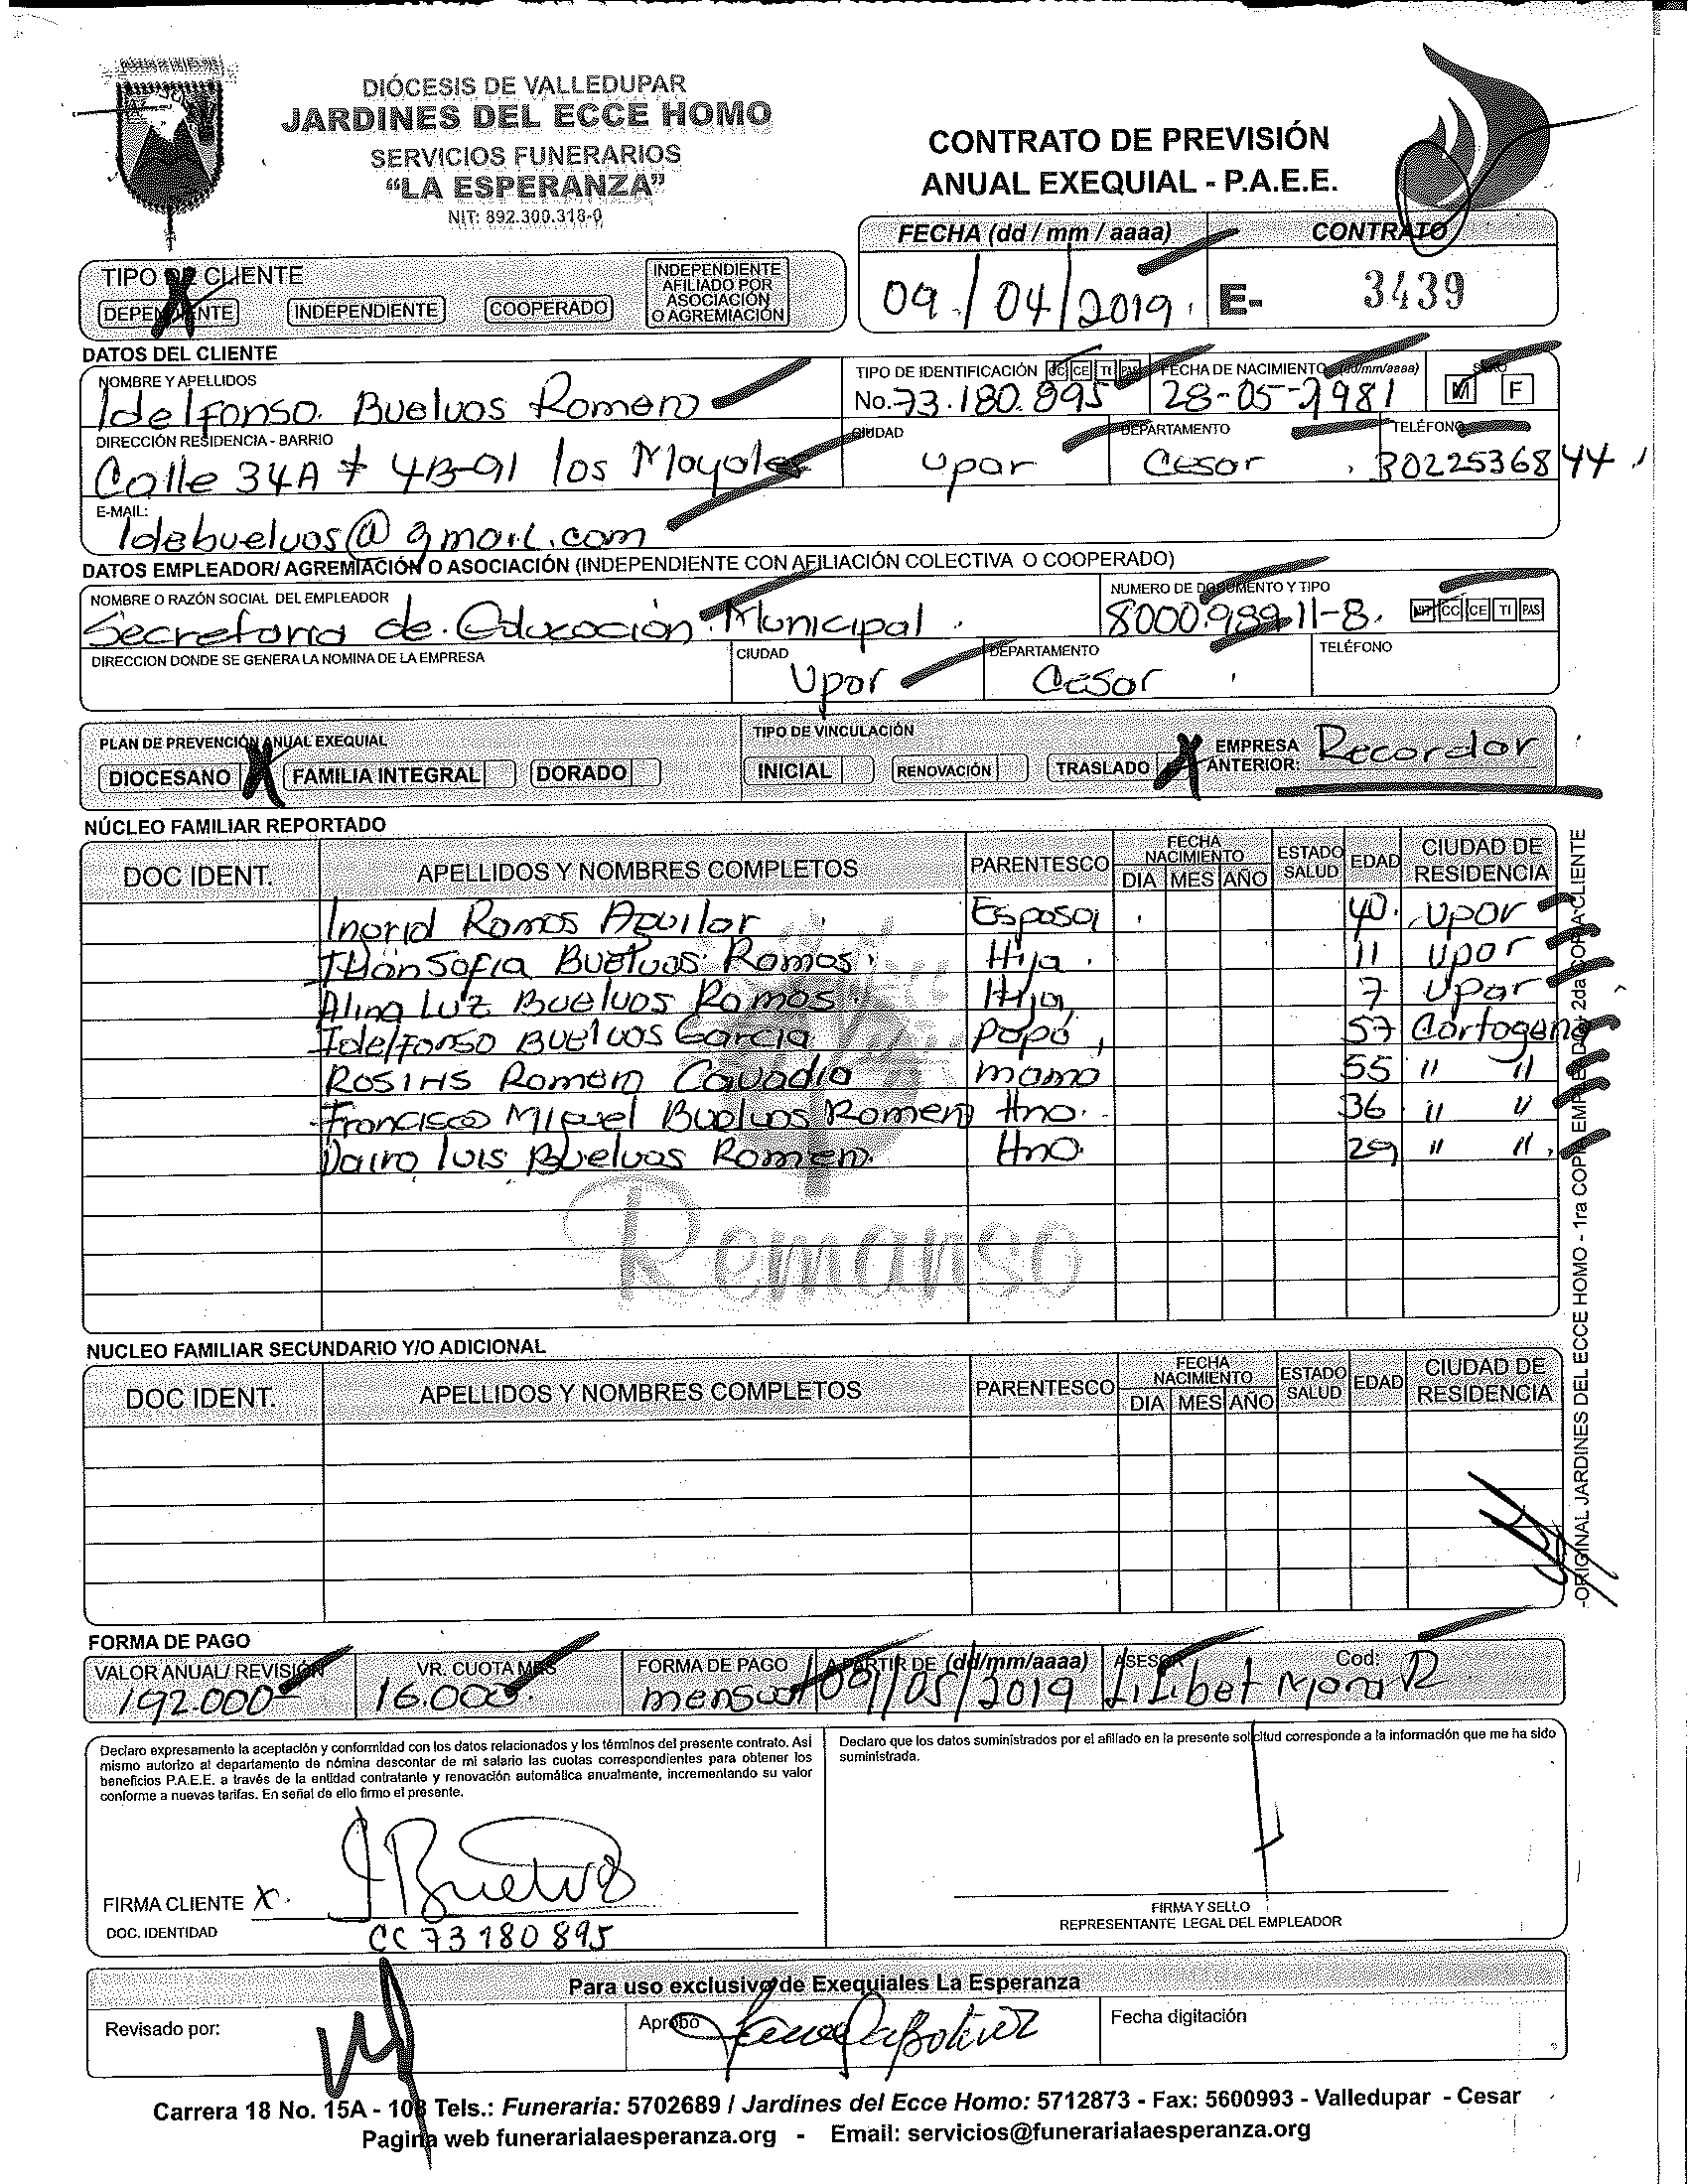 DIÓCESIS DE VALLEDUPAR
JARDINES DEL ECCE HOMO
SERVICIOS FUNERARIOS
“LA ESPERANZA”
NIT: 892.300.318-0
CONTRATO DE PREVISIÓN
ANUAL EXEQUIAL - P.A.E.E.
FECHA (dd / mm / aaaa) CONTRATO
09/04/2019 E- 3439
TIPO DE CLIENTE
DEPENDIENTE INDEPENDIENTE COOPERADO INDEPENDIENTE AFILIADO POR ASOCIACIÓN O AGREMIACIÓN
DATOS DEL CLIENTE
NOMBRE Y APELLIDOS TIPO DE IDENTIFICACIÓN CC CE TI PAS FECHA DE NACIMIENTO (dd/mm/aaaa) SEXO
Idelfonso Buelvas Romero No. 73.180.895 28-05-1981 M F
DIRECCIÓN RESIDENCIA - BARRIO CIUDAD DEPARTAMENTO TELÉFONO
Calle 34A # 4B-91 los Mayales Upar Cesar 3022536844
E-MAIL:
Idebuelvas@gmail.com
DATOS EMPLEADOR/ AGREMIACIÓN O ASOCIACIÓN (INDEPENDIENTE CON AFILIACIÓN COLECTIVA O COOPERADO)
NOMBRE O RAZÓN SOCIAL DEL EMPLEADOR NUMERO DE DOCUMENTO Y TIPO
Secretaria de Educación Municipal 800098911-8 NIT CC CE TI PAS
DIRECCION DONDE SE GENERA LA NOMINA DE LA EMPRESA CIUDAD DEPARTAMENTO TELÉFONO
Upar Cesar
PLAN DE PREVENCIÓN ANUAL EXEQUIAL TIPO DE VINCULACIÓN
DIOCESANO X FAMILIA INTEGRAL DORADO INICIAL RENOVACIÓN TRASLADO X EMPRESA ANTERIOR: Recordar
NÚCLEO FAMILIAR REPORTADO
DOC IDENT. APELLIDOS Y NOMBRES COMPLETOS PARENTESCO FECHA NACIMIENTO DIA MES AÑO ESTADO SALUD EDAD CIUDAD DE RESIDENCIA
Ingrid Ramos Aguilar Esposa 40 Upar
Sofia Buelvas Ramos Hija 11 Upar
Alina Luz Buelvas Ramos Hija 7 Upar
Idelfonso Buelvas Garcia Papá 57 Cartagena
Rosiris Romero Cavadia mama 55 " "
Francisco Miguel Buelvas Romero Hno. 36 " "
Dairo luis Buelvas Romero Hno. 29 " "
Remanso
NUCLEO FAMILIAR SECUNDARIO Y/O ADICIONAL
DOC IDENT. APELLIDOS Y NOMBRES COMPLETOS PARENTESCO FECHA NACIMIENTO DIA MES AÑO ESTADO SALUD EDAD CIUDAD DE RESIDENCIA
-ORIGINAL JARDINES DEL ECCE HOMO - 1ra COPIA EMPLEADOR 2da COPIA CLIENTE
FORMA DE PAGO
VALOR ANUAL/ REVISIÓN VR. CUOTA MES FORMA DE PAGO A PARTIR DE (dd/mm/aaaa) ASESOR Cod:
192.000 16.000 mensual 09/05/2019 Lilibet Mora R
Declaro expresamente la aceptación y conformidad con los datos relacionados y los términos del presente contrato. Así
mismo autorizo al departamento de nómina descontar de mi salario las cuotas correspondientes para obtener los
beneficios P.A.E.E. a través de la entidad contratante y renovación automática anualmente, incrementando su valor
conforme a nuevas tarifas. En señal de ello firmo el presente.
Declaro que los datos suministrados por el afiliado en la presente solicitud corresponde a la información que me ha sido
suministrada.
FIRMA CLIENTE X. J Buelvas
DOC. IDENTIDAD CC 73180895
FIRMA Y SELLO
REPRESENTANTE LEGAL DEL EMPLEADOR
Para uso exclusivo de Exequiales La Esperanza
Revisado por: Aprobó Fecha digitación
Carrera 18 No. 15A - 108 Tels.: Funeraria: 5702689 / Jardines del Ecce Homo: 5712873 - Fax: 5600993 - Valledupar - Cesar
Pagina web funerarialaesperanza.org - Email: servicios@funerarialaesperanza.org